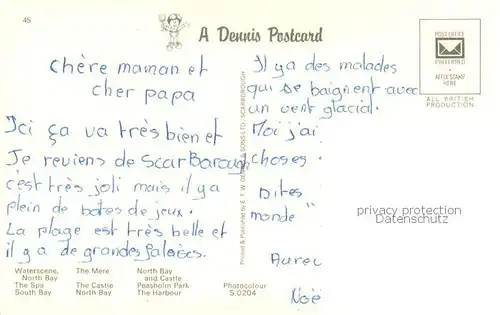 45
A Dennis Postcard
POST OFFICE
PREFERRED
AFFIX STAMP
HERE
ALL BRITISH
PRODUCTION
chère maman et
cher papa
Ici ça va très bien et
Je reviens de ScarBarough
c'est très joli mais il y a
plein de boites de jeux.
La plage est très belle et
il y a de grandes falaises.
Printed & Published by E.T.W. DENNIS & SONS LTD., SCARBOROUGH
Il y a des malades
qui se baignent avec
un vent glacial.
Moi j'ai
choses.
Dites
monde"
Aurel
Noë
privacy protection
Datenschutz
Waterscene,
North Bay
The Spa
South Bay
The Mere
The Castle
North Bay
North Bay
and Castle
Peasholm Park
The Harbour
Photocolour
S.0204